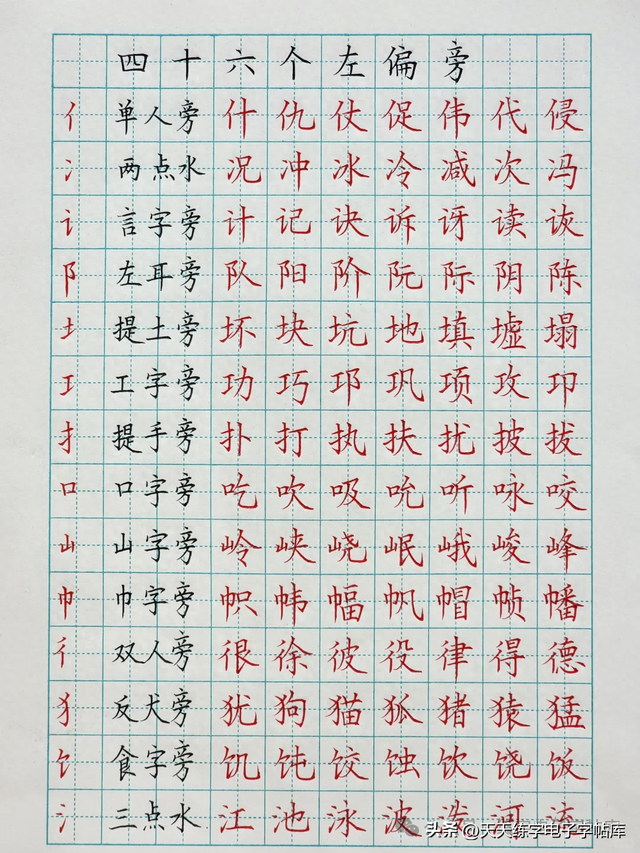 四十六个左偏旁
亻 单人旁 什 仇 仗 促 伟 代 侵
冫 两点水 况 冲 冰 冷 减 次 冯
讠 言字旁 计 记 诀 诉 讶 读 诙
阝 左耳旁 队 阳 阶 阮 际 阴 陈
土 提土旁 坏 块 坑 地 填 墟 塌
工 工字旁 功 巧 邛 巩 项 攻 卭
扌 提手旁 扑 打 执 扶 扰 披 拔
口 口字旁 吃 吹 吸 吮 听 咏 咬
山 山字旁 岭 峡 峣 岷 峨 峻 峰
巾 巾字旁 帜 帏 幅 帆 帽 帧 幡
彳 双人旁 很 徐 彼 役 律 得 德
犭 反犬旁 犹 狗 猫 狐 猪 猿 猛
饣 食字旁 饥 饨 饺 蚀 饮 饶 饭
氵 三点水 江 池 泳 波 浩 河 流
头条 @天天练字电子字帖库